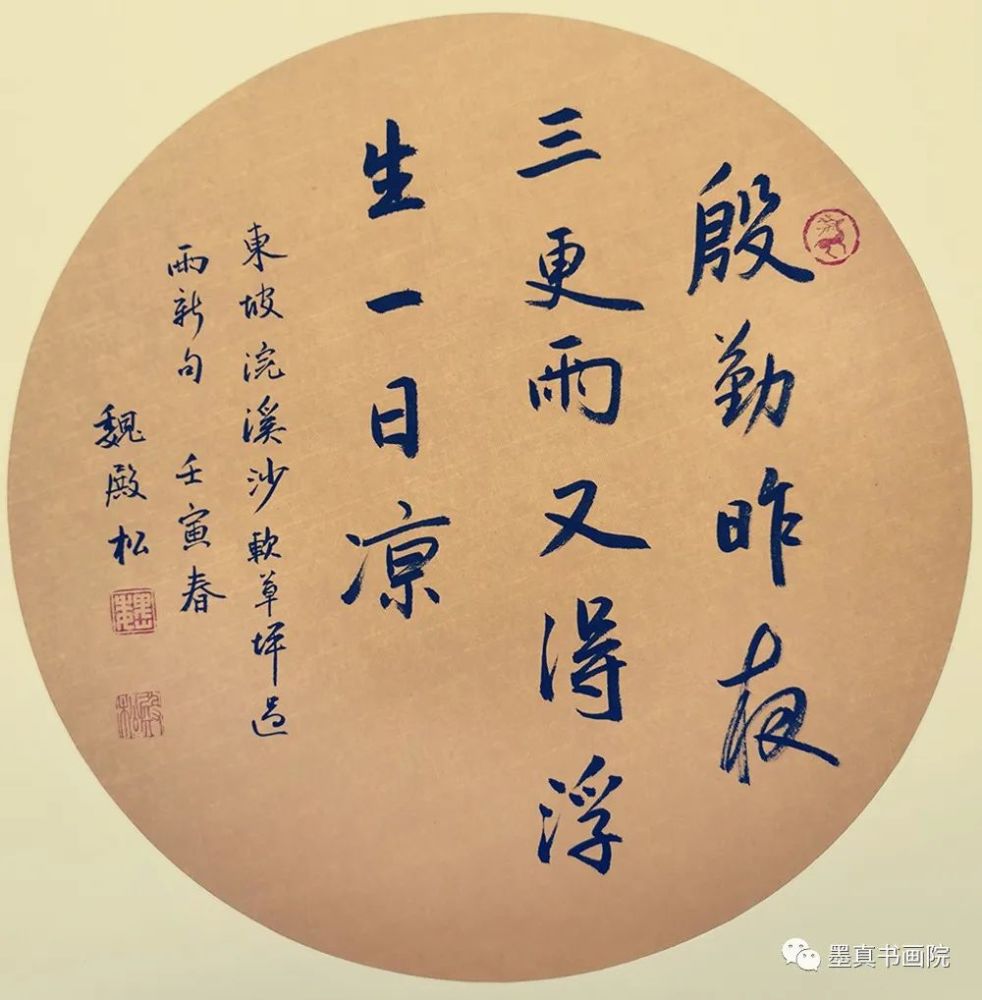 殷勤昨夜
三更雨又得浮
生一日凉
東坡浣溪沙軟草坪過
雨新句 壬寅春
魏殿松
魏
殿松
墨真书画院